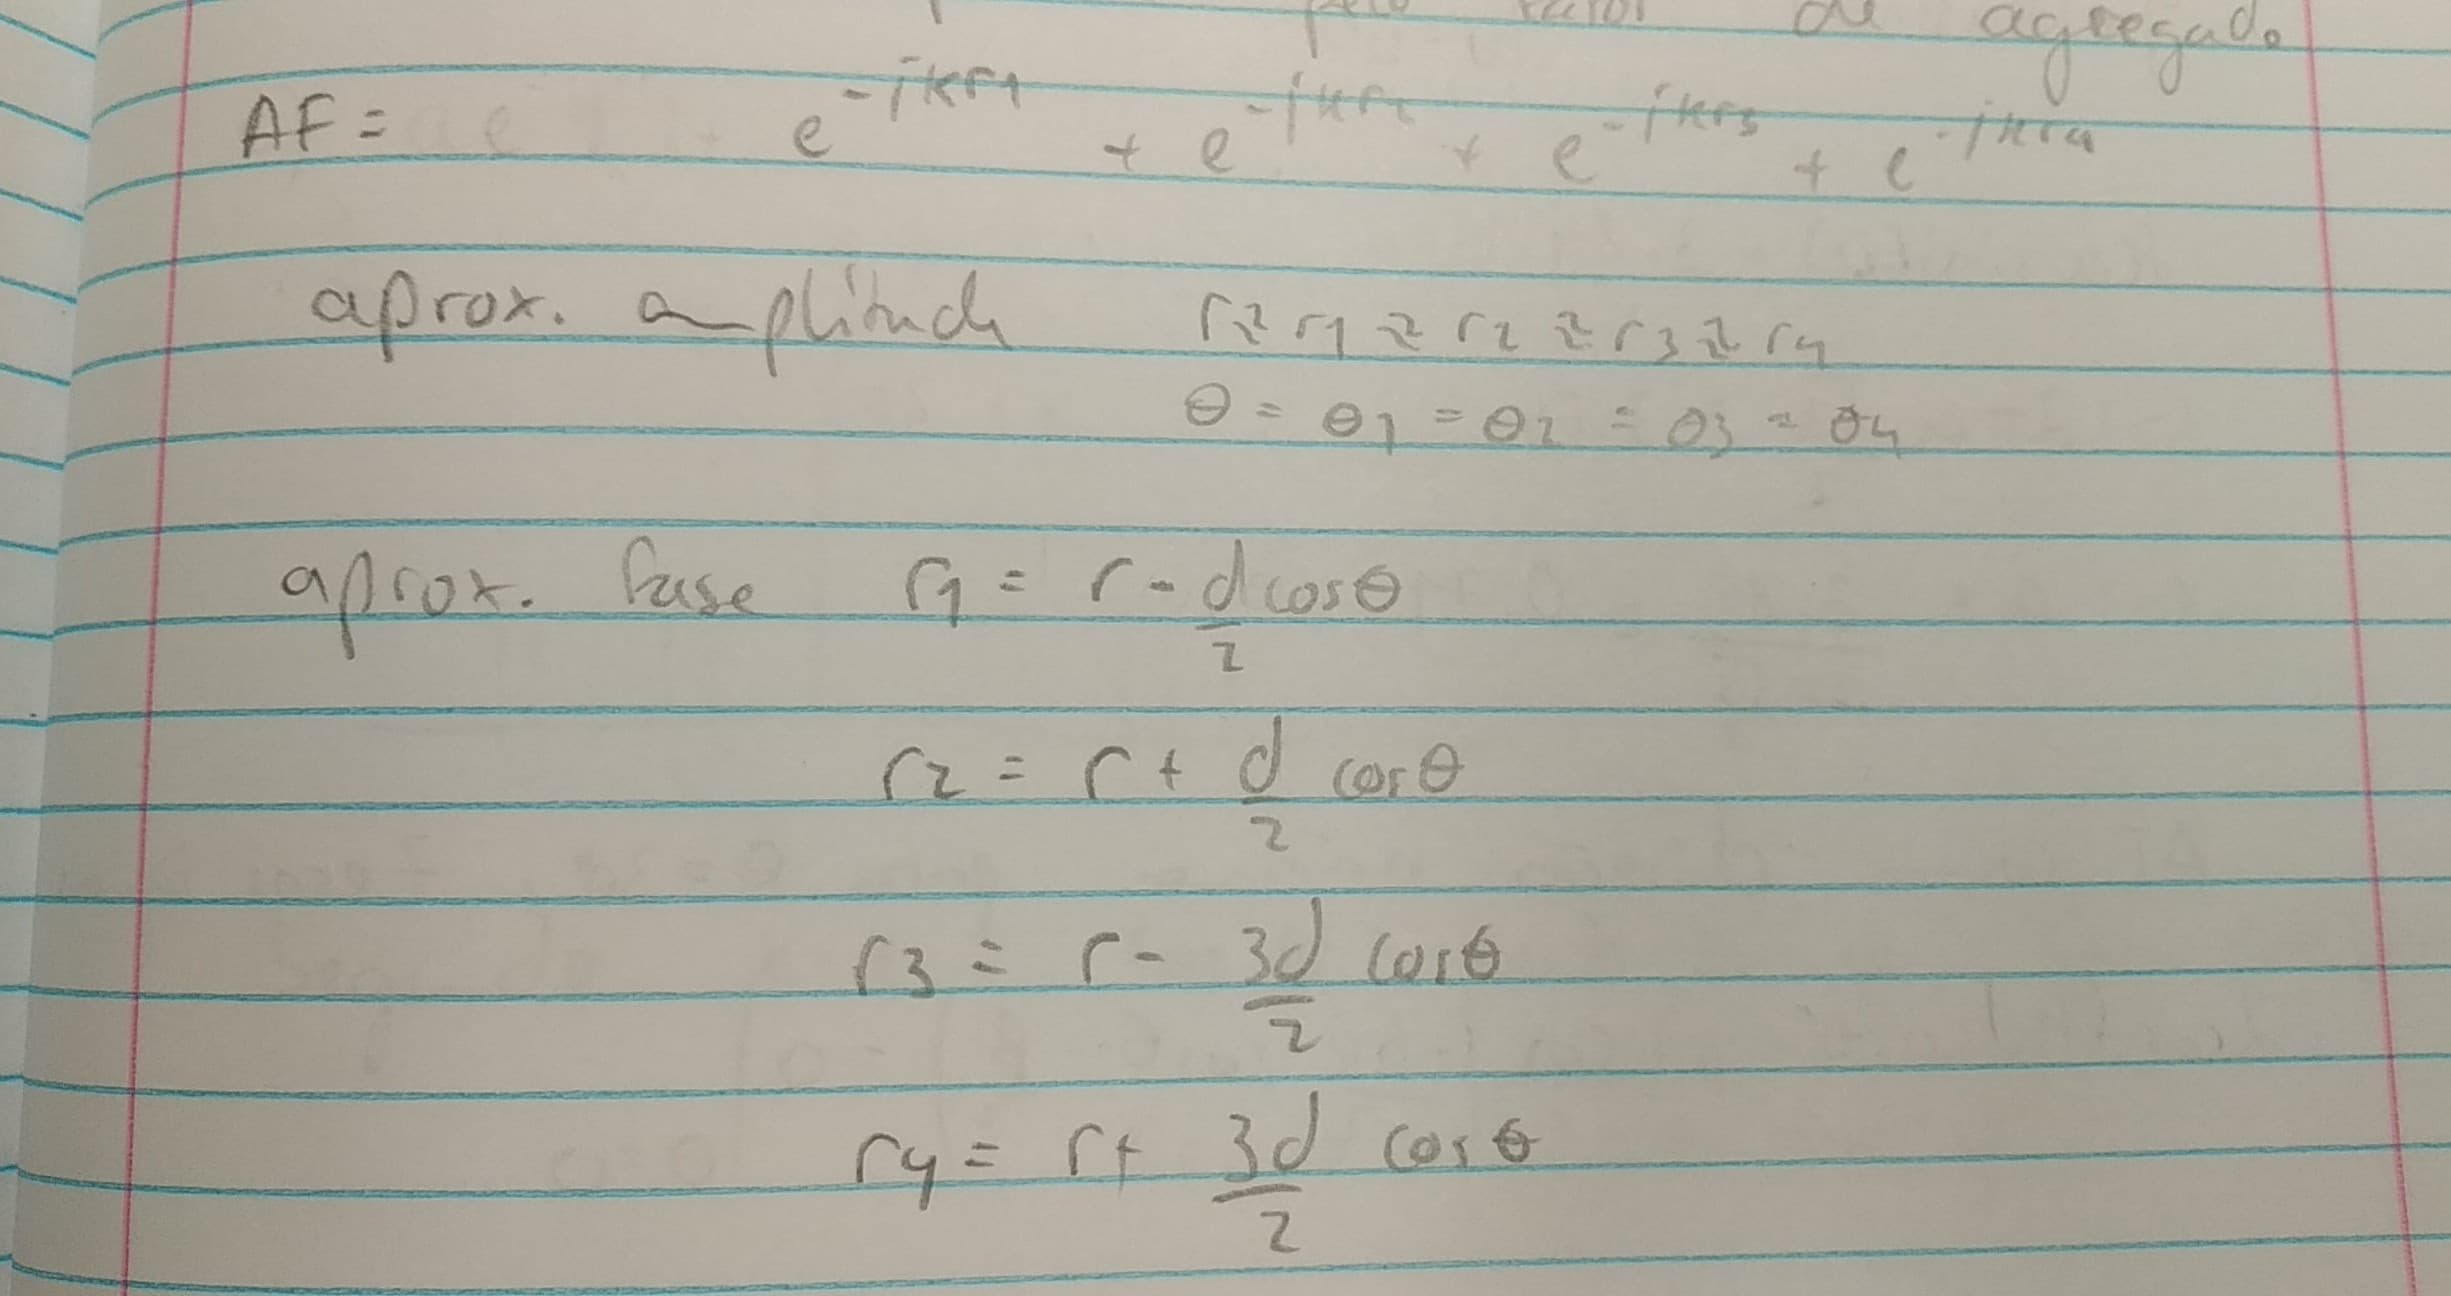 de agregado
AF = e^-jkr1 + e^-jkr2 + e^-jkr3 + e^-jkr4
aprox. amplitude r ≈ r1 ≈ r2 ≈ r3 ≈ r4
θ = θ1 = θ2 = θ3 = θ4
aprox. fase r1 = r - d/2 cosθ
r2 = r + d/2 cosθ
r3 = r - 3d/2 cosθ
r4 = r + 3d/2 cosθ